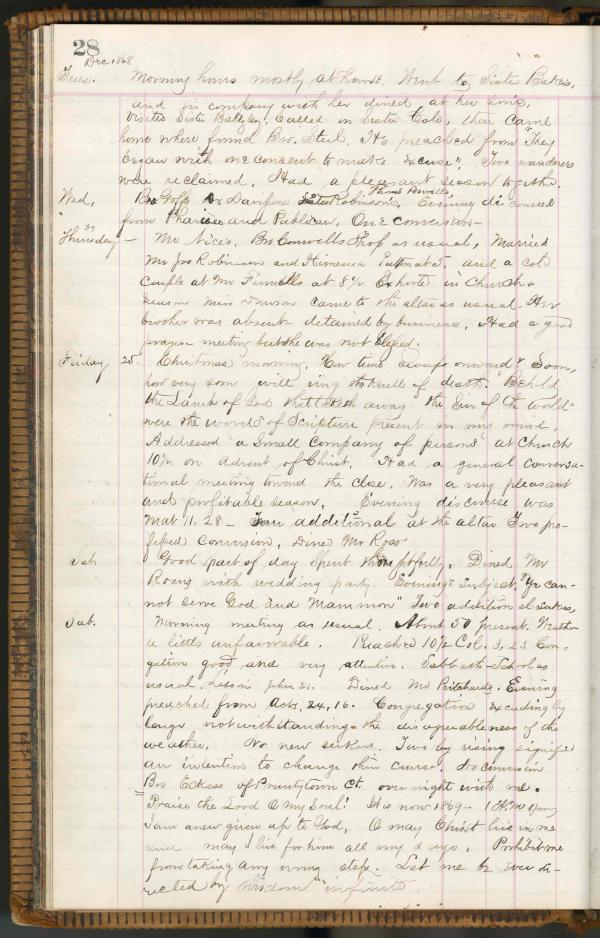 28
Dec 1868
Tues. Morning hours mostly at home. Went to Sister Bakers,
and in company with her dined at her son's,
visited Sister . Called on Sister Cole, then came
home where found Bro. Steel. He preached from "They
began with one consent to make excuse". Two wanderers
were reclaimed. Had a pleasant season together.
Wed, Bro Davison Robinsons, Evening discoursed
from Pharisee and Publican, One conversion —
Thursday — Mr Nice's, Bro Conwells Shop as usual, Married
Mr Jos Robinson and at 5. and a col
couple at Mr Finnells at 8½ Exhorted in Church a
season Miss Dawson came to the altar as usual. Her
brother was absent detained by business. Had a good
prayer meeting but she was not blessed.
Friday 25. Christmas morning. How time sweeps onward & Soon,
how very soon will ring the knell of death. "Behold
the Lamb of God that taketh away the Sin of the world"
were the words of Scripture present in my mind.
Addressed a Small Company of persons at Church
10½ on advent of Christ. Had a general conversa-
tional meeting toward the close. Was a very pleasant
and profitable season. Evening discourse was
Mat 11.28 — Four additional at the altar Two pro-
fessed conversion, Dined Mr Ross
Sat. Good part of day spent thoughtfully. Dined Mr
with wedding party. Evening subject, "Ye can-
not serve God and Mammon" Two additional seekers,
Sab. Morning meeting as usual. About 50 present. Weather
a little unfavorable. Preached 10½ Col. 3.23 Con-
gation good and very attentive. Sabbath School as
usual. Lesson John 21. Dined Mr Pritchards. Evening
preached from Acts, 24, 16. Congregation exceedingly
large notwithstanding the disagreeableness of the
weather. No new seekers. Two by rising signified
an intention to change their course. No conversion
Bro Eckess of Pruntytown Ct. over night with me.
Praise the Lord O my Soul! It is now 1869 —
I am anew given up to God, O may Christ live in me
and may I live for him all my days. Prohibit me
from taking any wrong step. Let me be ever di-
rected by wisdom infinite